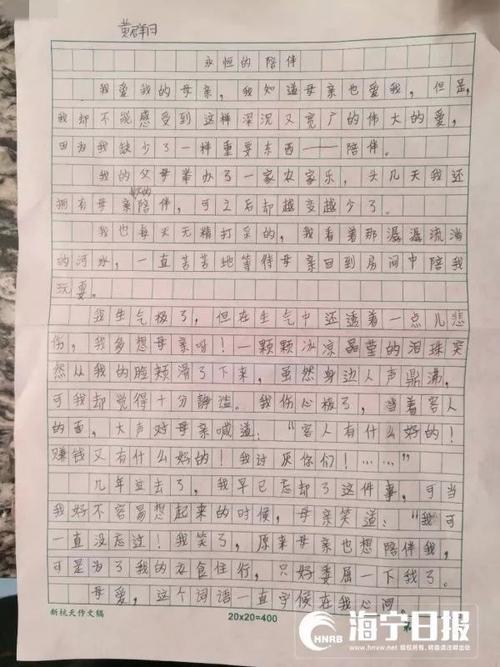 黄群
永恒的陪伴
我爱我的母亲，我知道母亲也爱我，但是，
我却不能感受到这种深沉又宽广的伟大的爱，
因为我缺少了一种重要东西——陪伴。
我的父母举办了一家农家乐，头几天我还
拥有母亲的陪伴，可之后却越变越少了。
我也每天无精打采的，我看着那潺潺流淌
的河水，一直苦苦地等待母亲回到房间中陪我
玩耍。
我生气极了，但在生气中还透着一点儿悲
伤，我多想母亲呀！一颗颗冰凉晶莹的泪珠突
然从我的脸颊滑了下来，虽然身边人声鼎沸，
可我却觉得十分静谧。我伤心极了，当着客人
的面，大声对母亲喊道：“客人有什么好的！
赚钱又有什么好的！我讨厌你们！……”
几年过去了，我早已忘却了这件事，可当
我好不容易想起来的时候，母亲笑道：“我可
一直没忘过！我笑了，原来母亲也想陪伴我，
可是为了我的衣食住行，只好委屈一下我了。
母爱，这个词语一直守候在我心间。
新杭天作文稿
20×20=400
HNRB
海宁日报
www.hnrb.net 版权所有 转载请注明出处